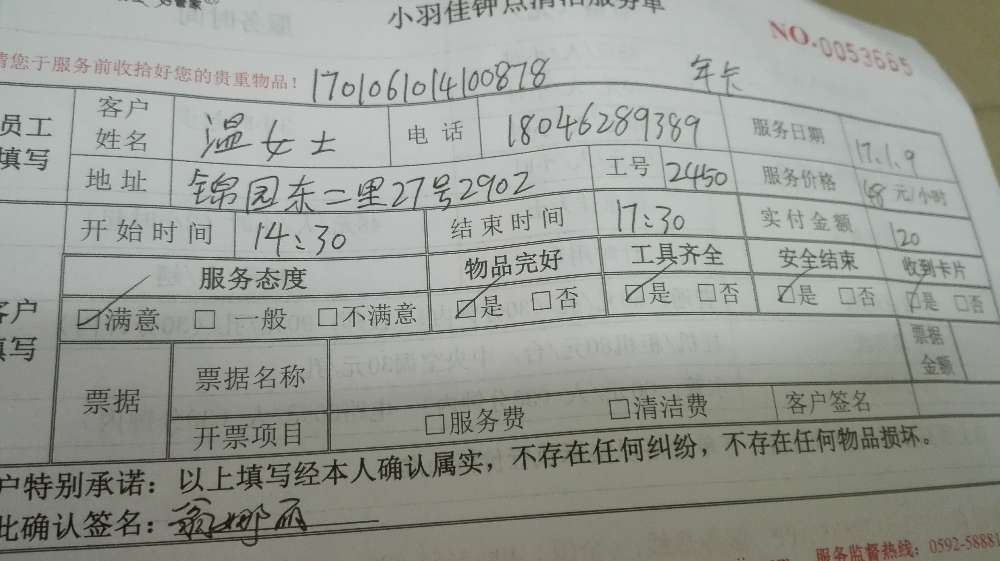 小羽佳钟点清洁服务单
NO.0053665
请您于服务前收拾好您的贵重物品! 1701061014100878 年卡
员工填写 客户姓名 温女士 电话 18046289389 服务日期 17.1.9
地址 锦园东二里27号2902 工号 2450 服务价格 元/小时
开始时间 14:30 结束时间 17:30 实付金额 120
服务态度 物品完好 工具齐全 安全结束 收到卡片
客户填写 ☑满意 □一般 □不满意 ☑是 □否 ☑是 □否 ☑是 □否 ☑是 □否
票据 票据名称 票据金额
开票项目 □服务费 □清洁费 客户签名
户特别承诺：以上填写经本人确认属实，不存在任何纠纷，不存在任何物品损坏。
此确认签名：翁娜丽
服务监督热线：0592-58881